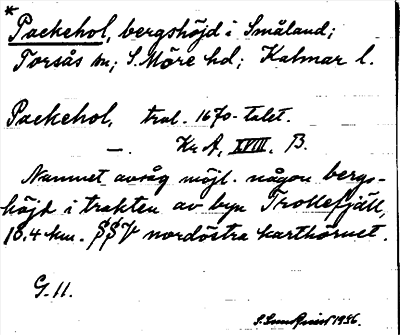 * Packehol, bergshöjd i Småland;
Torsås sn; S. Möre hd; Kalmar l.
Packehol, trol. 1670-talet.
—. Kr A, XVIII, B.
Namnet avsåg möjl. någon bergs-
höjd i trakten av byn Trollefjäll,
18.4 km. SSV nordöstra karthörnet.
G. 11.
1936.